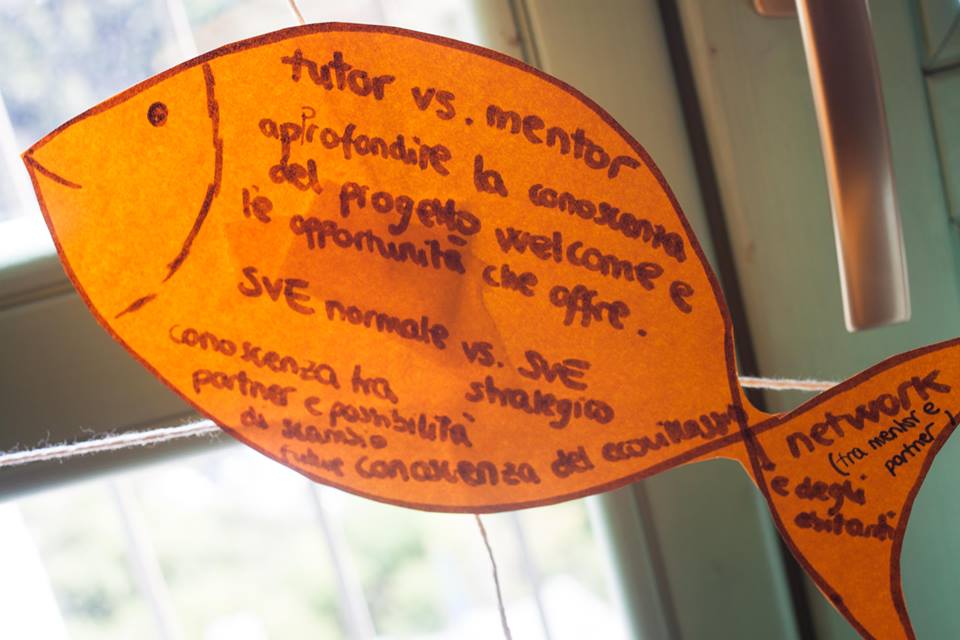 tutor vs. mentor
aprofondire la conoscenza
del progetto welcome e
le opportunità che offre.
SVE normale vs. SVE
strategico
conoscenza tra
partner e possibilità
di scambio
future conoscenza del ecovillaggio
network
(tra mentor e
partner)
e degli
abitanti